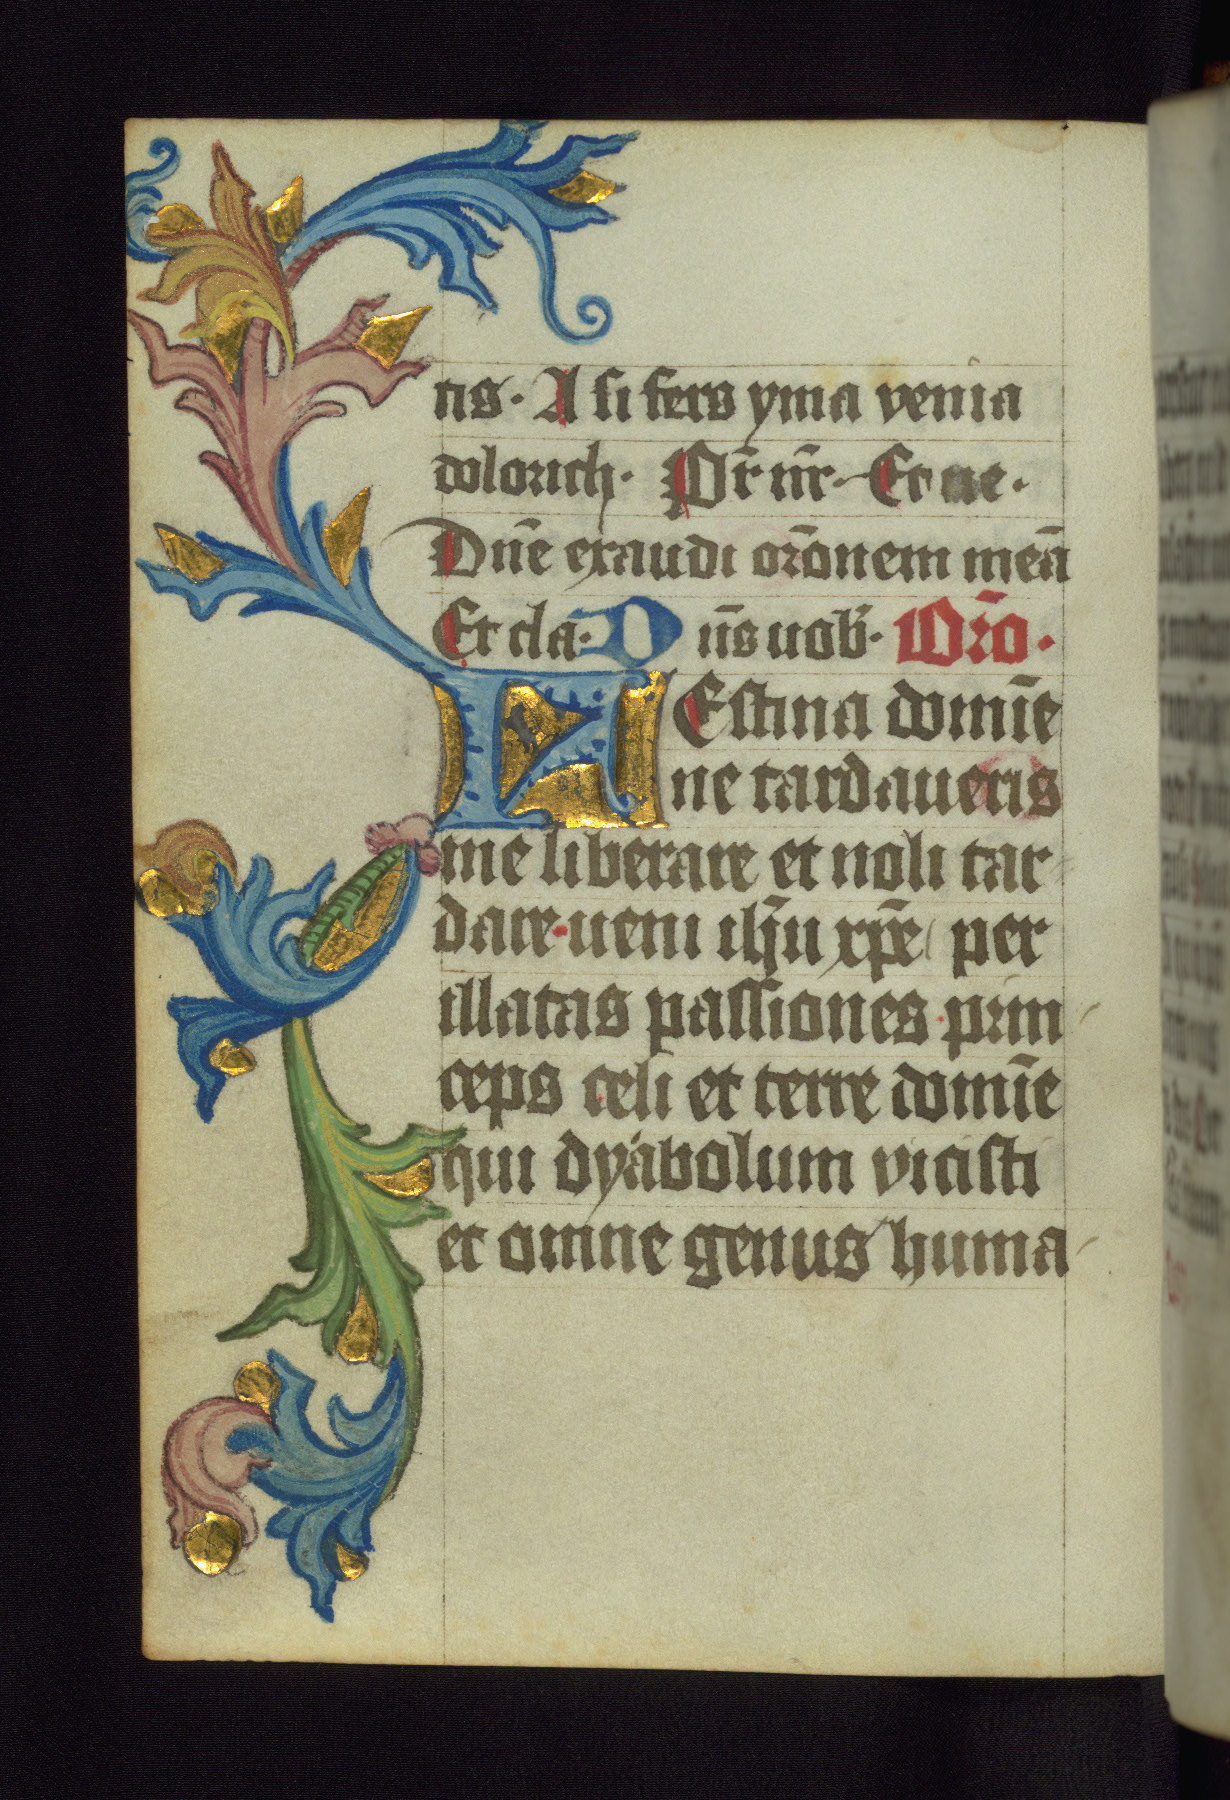 tis· A si fers yma venia
dolozich· Pr̄ nr̄· Et ne·
Dn̄e exaudi orōnem meā
Et cla· Dn̄s uob̄· Orō·
FEstina domīe
ne tardaueris
me liberare et noli tar
dare·ueni ihū xp̄e per
illatas passiones·prin
ceps celi et terre domīe
qui dyabolum vicisti
et omne genus huma